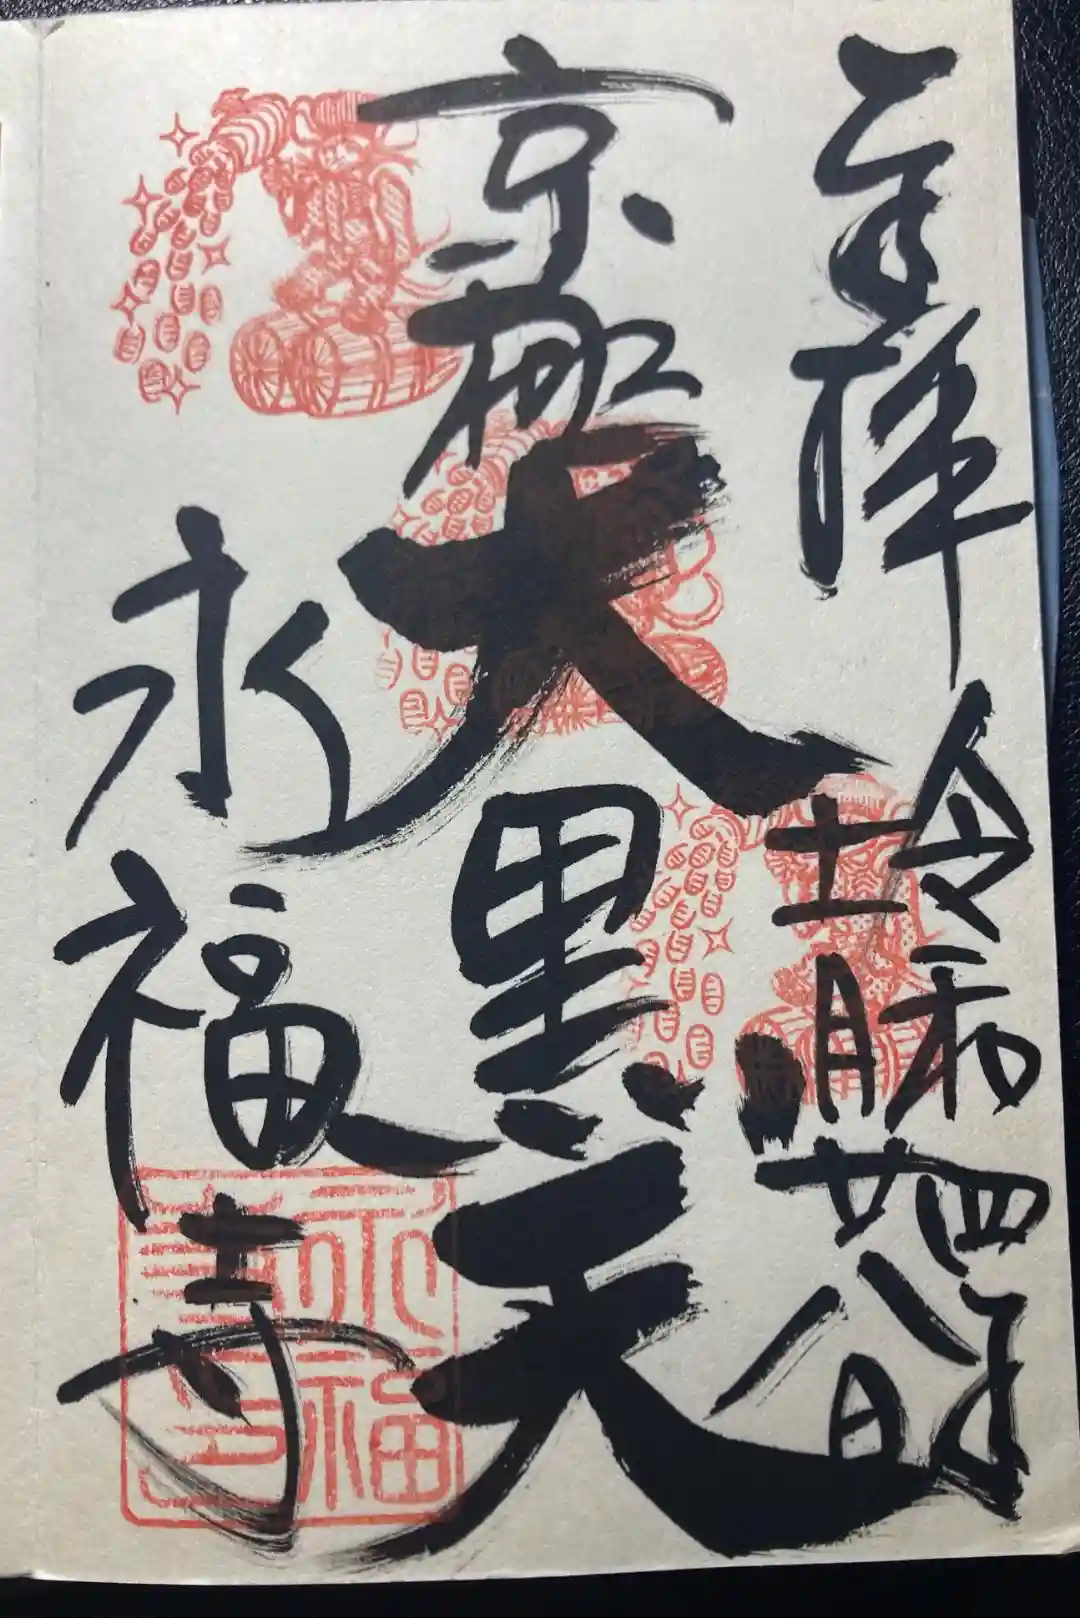 奉拝
令和四年
十一月廿八日
京極
大黒天
永福寺
永福
寺印